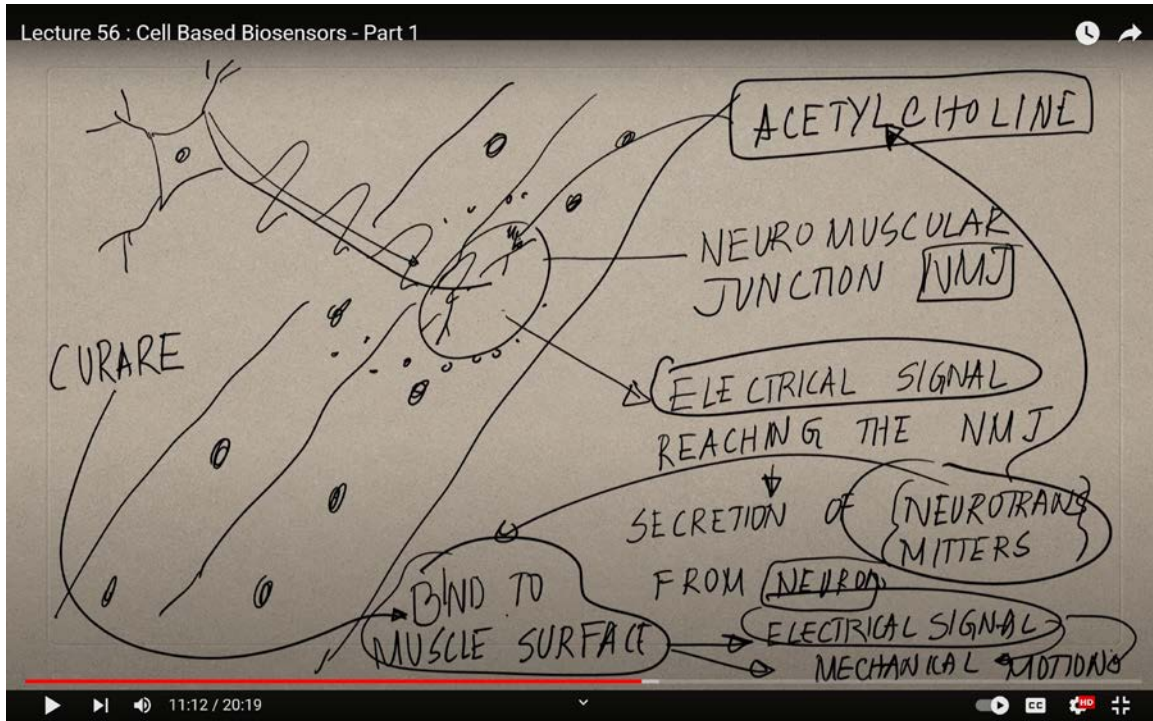 Lecture 56 : Cell Based Biosensors - Part 1
ACETYLCHOLINE
NEUROMUSCULAR
JUNCTION NMJ
CURARE
ELECTRICAL SIGNAL
REACHING THE NMJ
SECRETION OF {NEUROTRANS
MITTERS}
FROM NEURON
BIND TO
MUSCLE SURFACE
ELECTRICAL SIGNAL
MECHANICAL MOTION
11:12 / 20:19
CC
HD